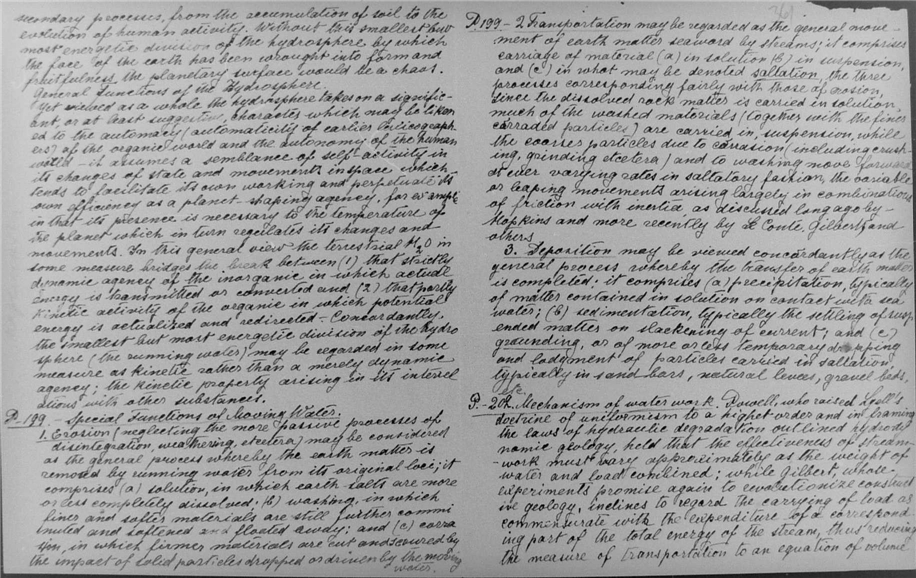 secondary processes, from the accumulation of soil to the
evolution of human activity. Without this smallest but
most energetic division of the hydrosphere by which
the face of the earth has been wrought into form and
fruitfulness, the planetary surface would be a chaos.
General Functions of the Hydrosphere.
Yet viewed as a whole the hydrosphere takes on a signific-
ant, or at least suggestive, character which may be liken
ed to the automacy (automaticity of earlier
ers) of the organic world and the autonomy of the human
world - it assumes a semblance of self-activity in
its changes of state and movements in space which
tends to facilitate its own working and perpetuate its
own efficiency as a planet-shaping agency, for example
in that its presence is necessary to the temperature of
the planet which in turn regulates its changes and
movements. In this general view the terrestrial H2O in
some measure bridges the break between (1) that strictly
dynamic agency of the inorganic in which actual
energy is transmitted or converted and (2) that partly
kinetic activity of the organic in which potential
energy is actualized and redirected. Concordantly,
the smallest but most energetic division of the hydro
sphere (the running water) may be regarded in some
measure as kinetic rather than a merely dynamic
agency; the kinetic property arising in its interel
ations with other substances.
P-199 - Special Functions of Moving Water.
1. Erosion (neglecting the more passive processes of
disintegration, weathering, etcetera) may be considered
as the general process whereby the earth matter is
removed by running water from its original loci; it
comprises (a) solution, in which earth salts are more
or less completely dissolved; (b) washing, in which
finer and softer materials are still further commi
nuted and softened and floated away; and (c) corra
sion, in which firmer materials are cut and scoured by
the impact of solid particles dropped or driven by the moving
water.
P199 - 2 Transportation may be regarded as the general move-
ment of earth matter seaward by streams; it comprises
carriage of material (a) in solution (b) in suspension,
and (c) in what may be denoted saltation, the three
processes corresponding fairly with those of erosion,
since the dissolved rock matter is carried in solution,
much of the washed materials (together with the finer
corraded particles) are carried in suspension, while
the coarser particles due to corrasion (including crush-
ing, grinding etcetera) and to washing move forward
at ever varying rates in saltatory fashion, the variable
or leaping movements arising largely in combinations
of friction with inertia, as discussed long ago by-
Hopkins and more recently by Le Conte, Gilbert, and
others.
3. Deposition may be viewed concordantly as the
general process whereby the transfer of earth matter
is completed; it comprises (a) precipitation, typically
of matter contained in solution on contact with sea
water; (b) sedimentation, typically the settling of susp
ended matter on slackening of current; and (c)
grounding, or of more or less temporary dropping
and lodgment of particles carried in saltation,
typically in sand bars, natural levees, gravel beds,
P.-202. Mechanism of water work. Powell, who raised Lyell's
doctrine of uniformism to a higher order and in framing
the laws of hydraulic degradation outlined hydrody
namic geology, held that the effectiveness of stream-
work must vary approximately as the weight of
water and load combined; while Gilbert, whose-
experiments promise again to revolutionize construct
ive geology, inclines to regard the carrying of load as
commensurate with the expenditure of a correspond
ing part of the total energy of the stream, thus reducing
the measure of transportation to an equation of volume